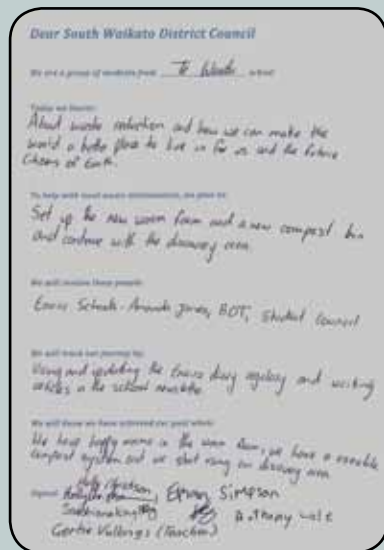 Dear South Waikato District Council
We are a group of students from Te school
Today we learnt:
About waste reduction and how we can make the
world a better place to live in for us and the future
of Earth.
To help with local waste minimisation, we plan to:
Set up the new worm farm and a new compost bin
and continue with the discovery area.
We will involve these people:
Enviro Schools - Amanda Jones, BOT, Student Council
We will track our journey by:
Using and updating the Enviro diary regulary and writing
articles in the school newsletter.
We will know we have achieved our goal when:
We have happy worms in the worm farm, we have a useable
compost system and we start using our discovery area
Signed:
Simpson
Anthony
Gertie (Teacher)